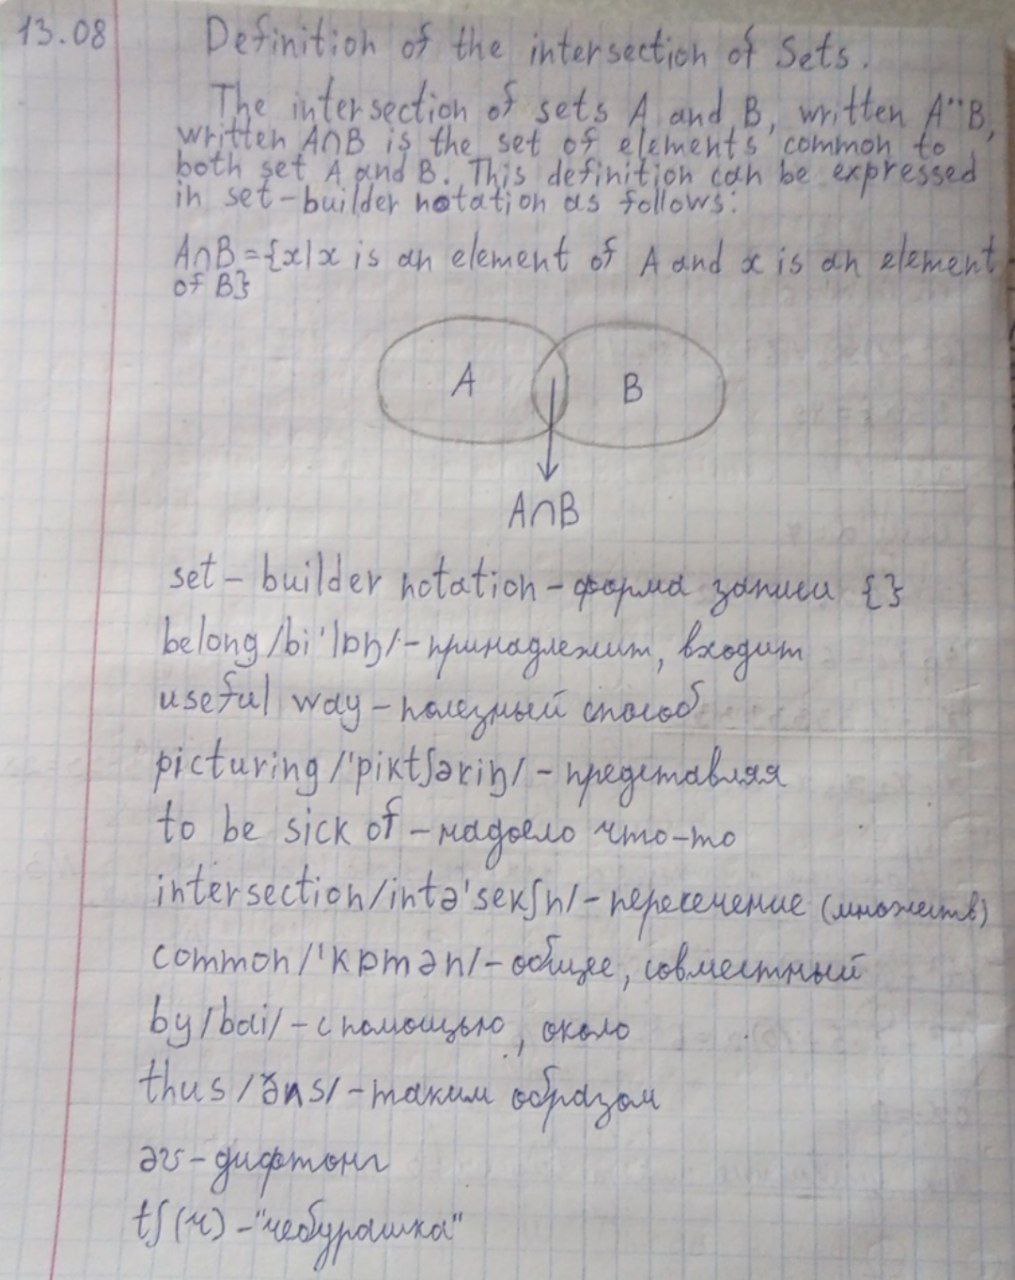 13.08 Definition of the intersection of Sets.
The intersection of sets A and B, written A¨B,
written A∩B is the set of elements common to
both set A and B. This definition can be expressed
in set-builder notation as follows:
A∩B={x|x is an element of A and x is an element
of B}
A B
A∩B
set – builder notation – форма записи { }
belong /bi'lɒŋ/ – принадлежит, входит
useful way – полезный способ
picturing /'piktʃəriŋ/ – представляя
to be sick of – надоело что-то
intersection /intə'sekʃn/ – пересечение (множеств)
common /'kɒmən/ – общее, совместный
by /bai/ – с помощью, около
thus /ðʌs/ – таким образом
əʊ – дифтонг
tʃ (ч) – "чебурашка"